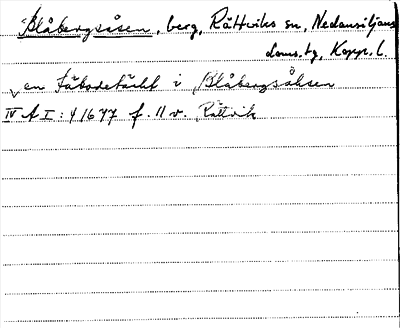 Blåbergsåsen, berg, Rättviks sn, Nedansiljans
doms.tg, Kopp. l.
en Fäbodetäckt i Blåbergsåhsen
IV A I: 4 1677 f. 11 v. Rättvik